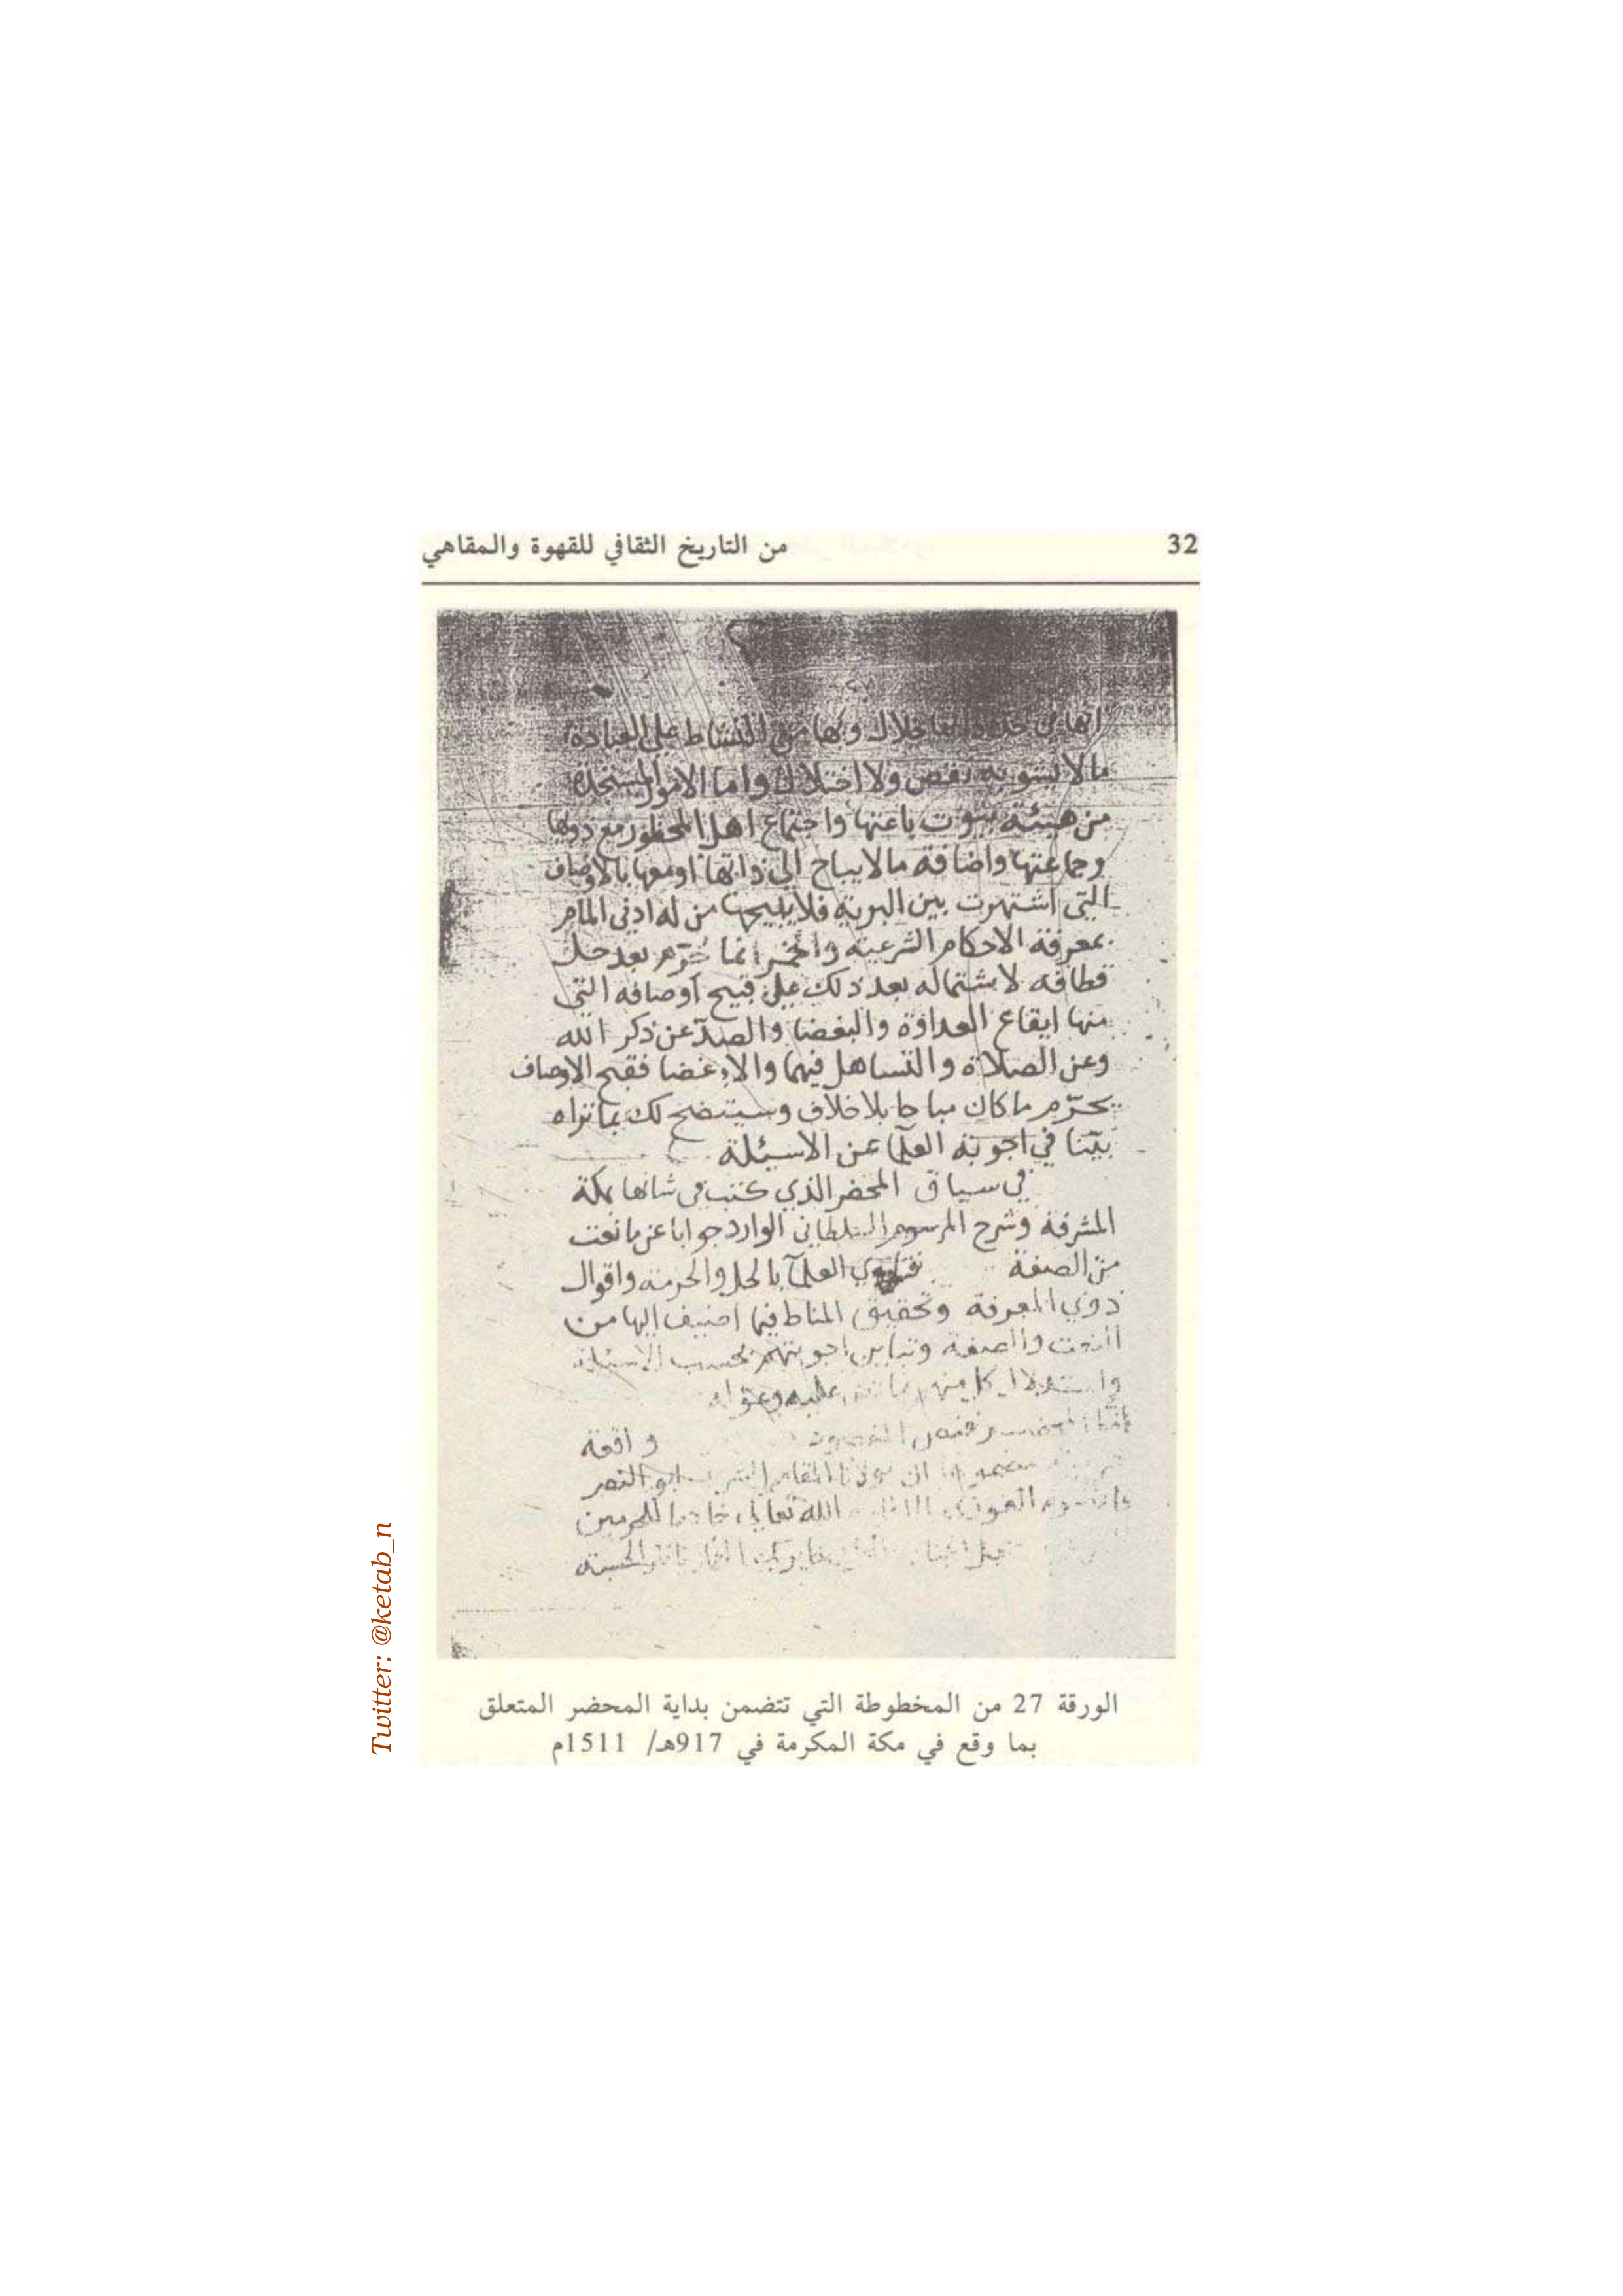 32
من التاريخ الثقافي للقهوة والمقاهي
حلال وبها من النشاط على العبادة
مالا يشوبه نقص ولا اختلال واما الامور المستجدة
من هيئة بيوت باعتها واجتماع اهل المحظور مع ذويها
وجماعتها واضافة مالا يباح الى ذاتها او معها بالاوصاف
التي اشتهرت بين البرية فلا يبيحها من له ادنى المام
بمعرفة الاحكام الشرعية والخمر انما حرم بعد حل
قطافه لاشتماله بعد ذلك على قبيح اوصافه التي
منها ايقاع العداوة والبغضا والصد عن ذكر الله
وعن الصلاة والتساهل فيها والاغضا فقبح الاوصاف
يحرم ما كان مباحا بلا خلاف وسيتضح لك بما تراه
بيّنا في اجوبة العلما عن الاسئلة
في سياق المحضر الذي كتب في شانها بمكة
المشرفة وشرح المرسوم السلطاني الوارد جوابا عن ما نعت
من الصفة فتاوي العلمآ بالحل والحرمة واقوال
ذوي المعرفة وتحقيق المناط فيما اضيف اليها من
النعت والصفة وتباين اجوبتهم بحسب الاسئلة
واستدلال كل منهم عليه وعوله
واقعة
ان مولانا المقام الشريف ابو النصر
قانصوه الغوري الله تعالى خادما للحرمين
الحسبة
الورقة 27 من المخطوطة التي تتضمن بداية المحضر المتعلق
بما وقع في مكة المكرمة في 917هـ/ 1511م
Twitter: @ketab_n